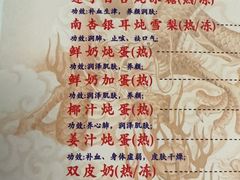 功效:补血生津,养颜润肤;
南杏银耳炖雪梨(热/冻)
功效:润肺、止咳、祛口气;
鲜奶炖蛋(热)
鲜奶加蛋(热)
功效:润泽肌肤,养颜;
椰汁炖蛋(热)
功效:养心肺,润泽肌肤;
姜汁炖蛋(热)
功效:补血、身体虚弱,皮肤干燥;
双皮奶(热/冻)